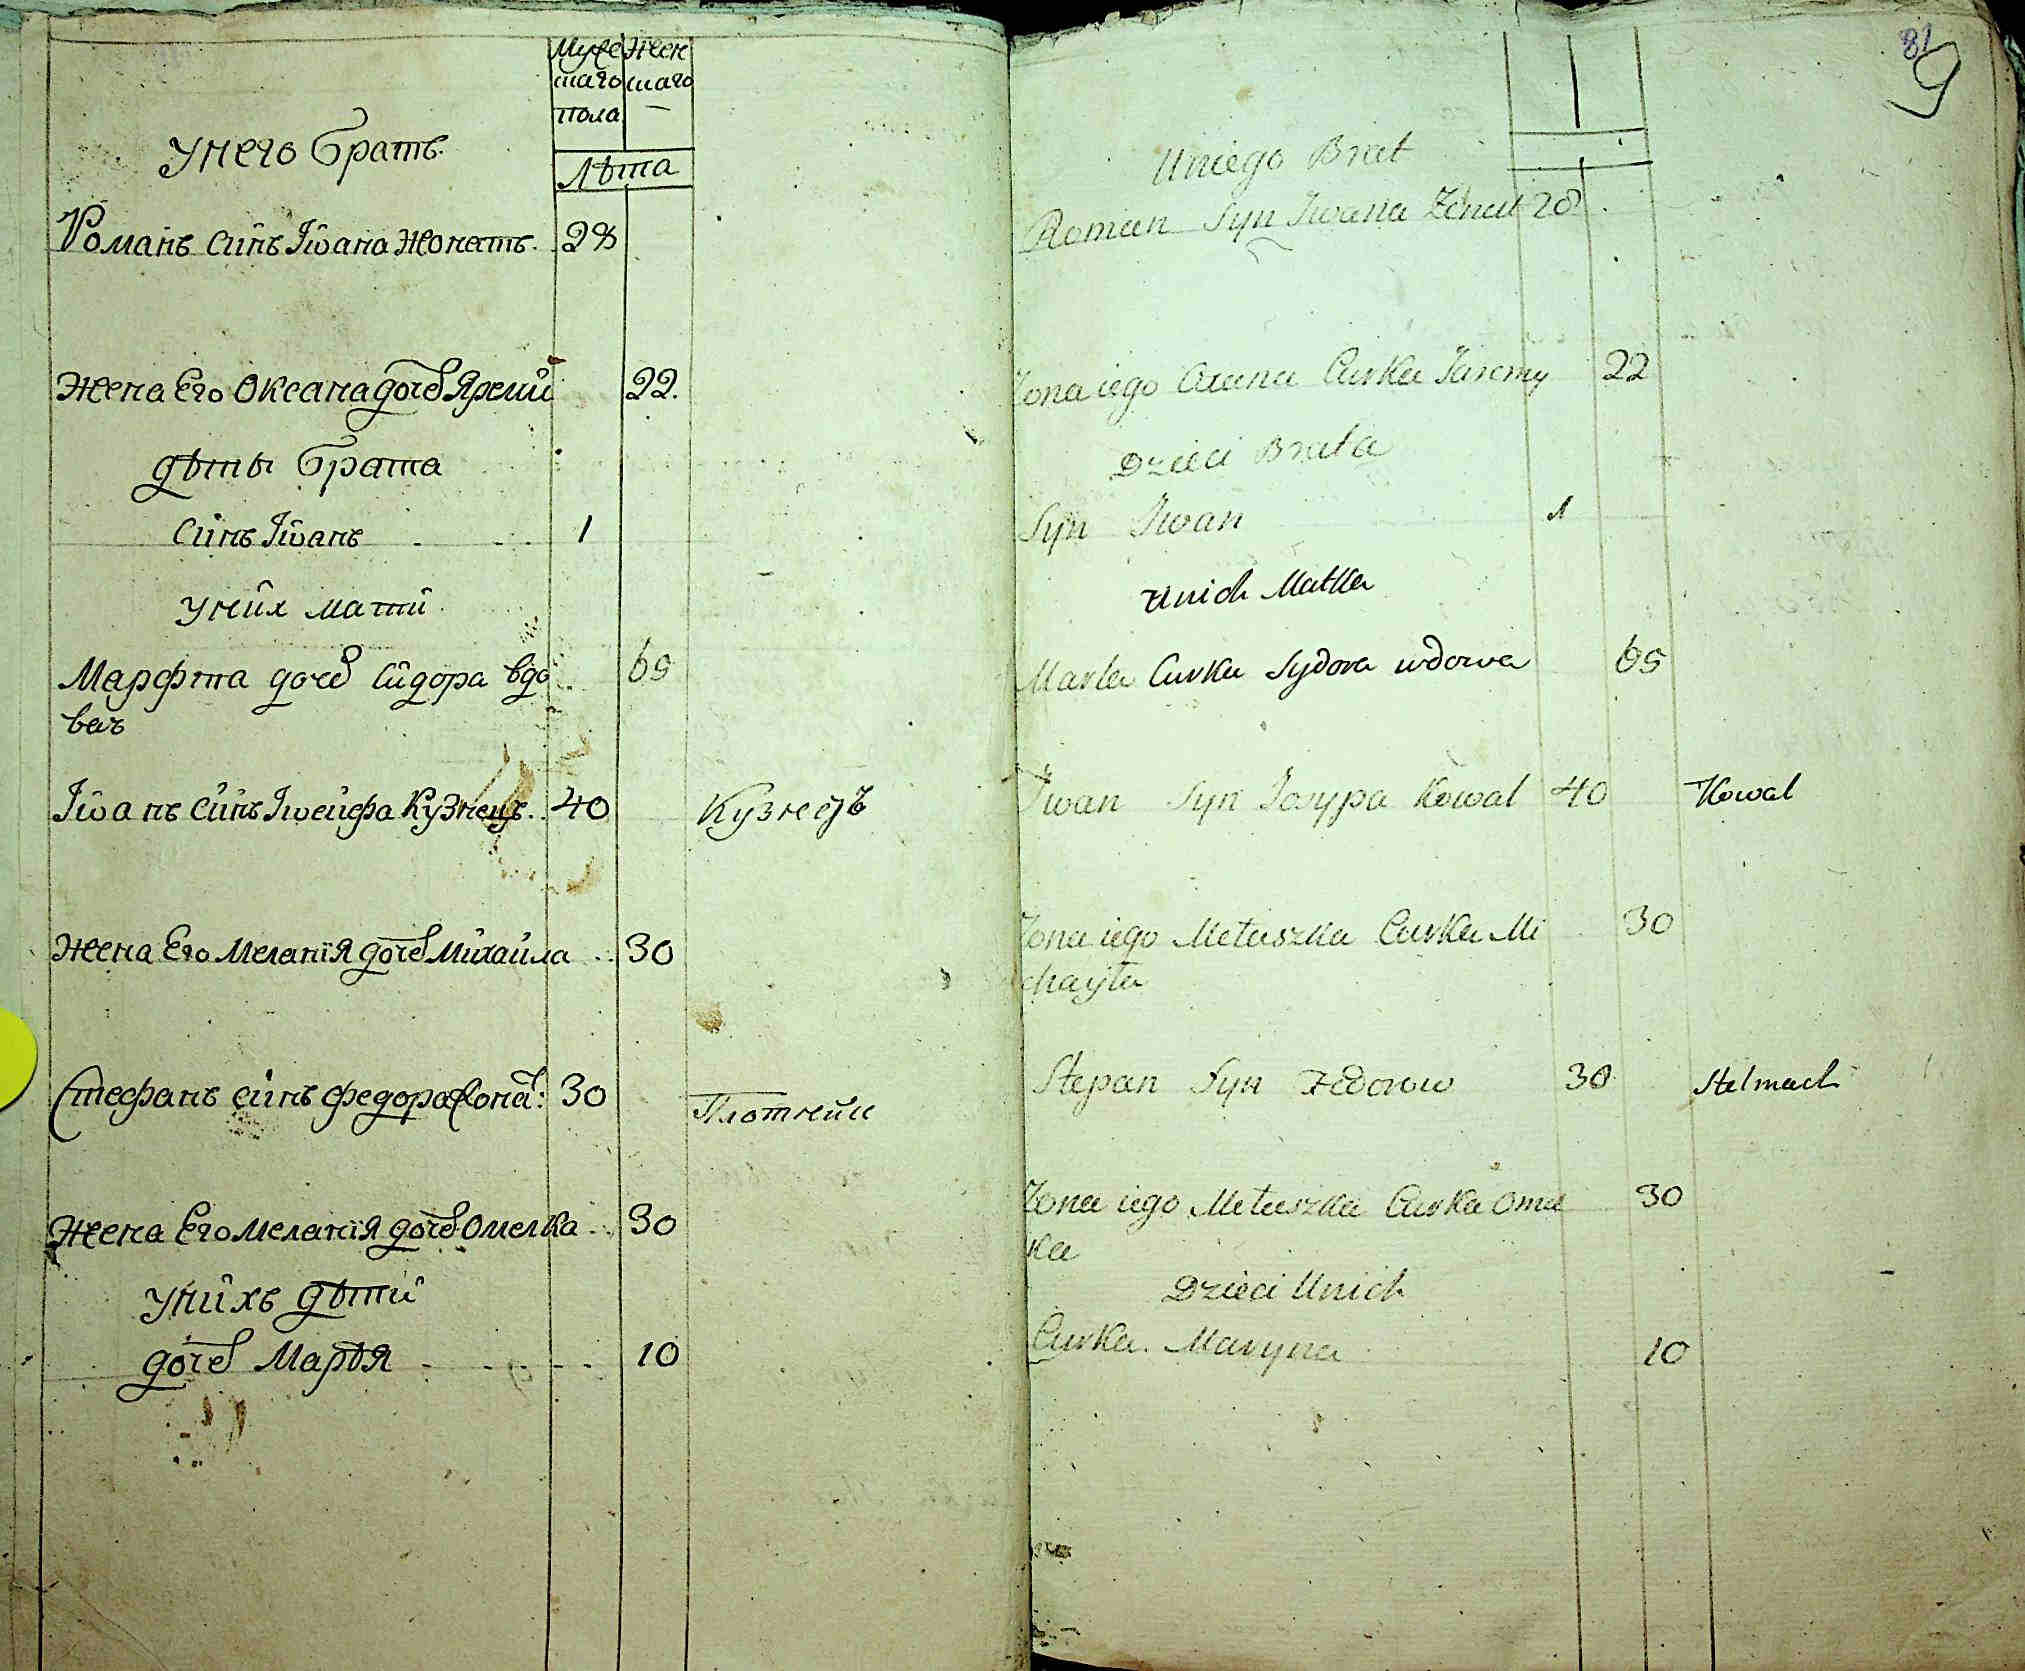 Муже Жен
скаго скаго
пола
Лѣта
У него братъ
Романъ синъ Iвана жонатъ 28
Жена Его Оксана дочь Яреми 22
дѣты брата
Синъ Iванъ 1
У них мати
Марфта дочь Сидора вдо 65
ва
Iванъ синъ Iосифа Кузнецъ 40 Кузнецъ
Жена Его Меланiя дочь Михаила 30
Стефанъ синъ Федора 30 Плотник
Жена Его Меланiя дочь Омелка 30
У нихъ дѣти
дочь Марья 10
81
9
Uniego Brat
Roman Syn Iwana Żonat 28
Żona iego Oxana Curka Jaremy 22
Dzieci Brata
Syn Iwan 1
Unich Matka
Marta Curka Sydora wdowa 65
Iwan Syn Josypa Kowal 40 Kowal
Żona iego Małaszka Curka Mi 30
chayła
Stepan Syn Fedorow 30 Stelmach
Żona iego Małaszka Curka Omel 30
ka
Dzieci Unich
Curka Maryna 10